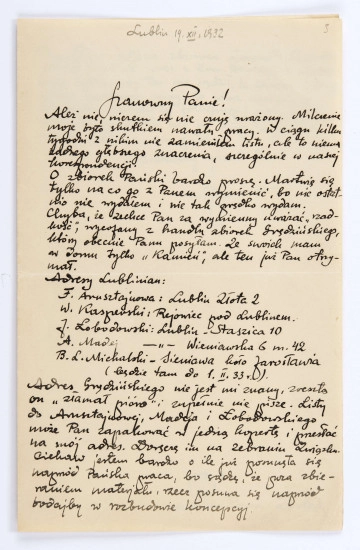 Lublin 19. XII. 1932
3
Szanowny Panie!
Ależ nie, niczem się nie czuję urażony. Milczenie
moje było skutkiem nawału pracy. W ciągu kilku
tygodni z nikim nie zamieniłem listu, ale to niema
żadnego głębszego znaczenia, szczególnie w naszej
korespondencji.
O zbiorek Pański bardzo proszę. Martwię się
tylko na co go z Panem wymienić, bo nic ostat-
nio nie wydałem i nie tak prędko wydam.
Chyba, że zechce Pan za wymienny uważać, "rzad-
kość", wycofany z handlu zbiorek Grędzińskiego,
który obecnie Panu posyłam. Ze swoich mam
w domu tylko "Kamień", ale ten już Pan otrzy-
mał.
Adresy Lublinian:
F. Arnsztajnowa: Lublin Złota 2
W. Kasperski: Rejowiec pod Lublinem.
J. Łobodowski: Lublin Staszica 10
A. Madej —„— Wieniawska 6 m. 42
B. L. Michalski - Sieniawa koło Jarosławia
(będzie tam do 1. II. 33.)
Adres Grędzińskiego nie jest mi znany, zresztą
on "złamał pióro" i zupełnie nie pisze. Listy
do Arnsztajnowej, Madeja i Łobodowskiego
może Pan zapakować w jedną kopertę i przesłać
na mój adres. Doręczę im na zebraniu Związku.
Ciekaw jestem bardzo o ile już posunęła się
naprzód Pańska praca, bo sądzę, że poza zbie-
raniem materjału, rzecz posuwa się naprzód
bodajby w rozbudowie koncepcyj